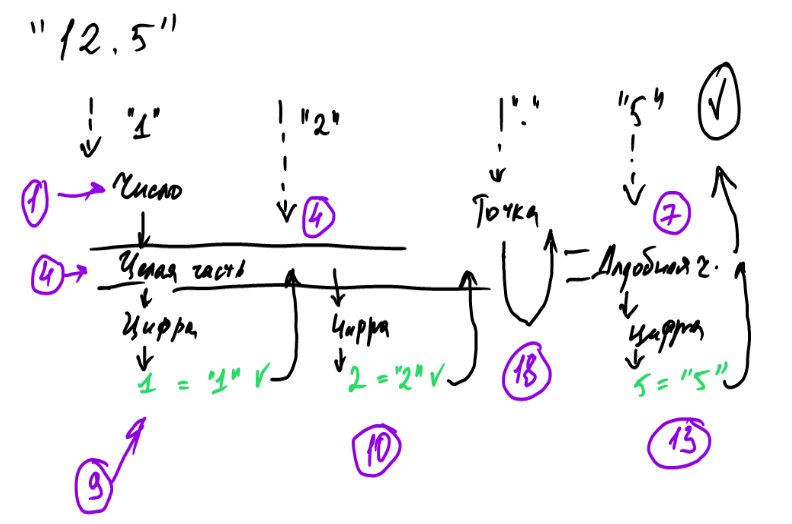 "12.5"
"1" "2" "." "5" ✓
1 Число 4 Точка 7
4 Целая часть Дробная ч.
Цифра Цифра Цифра
1 = "1" ✓ 2 = "2" ✓ 18 5 = "5"
9 10 13